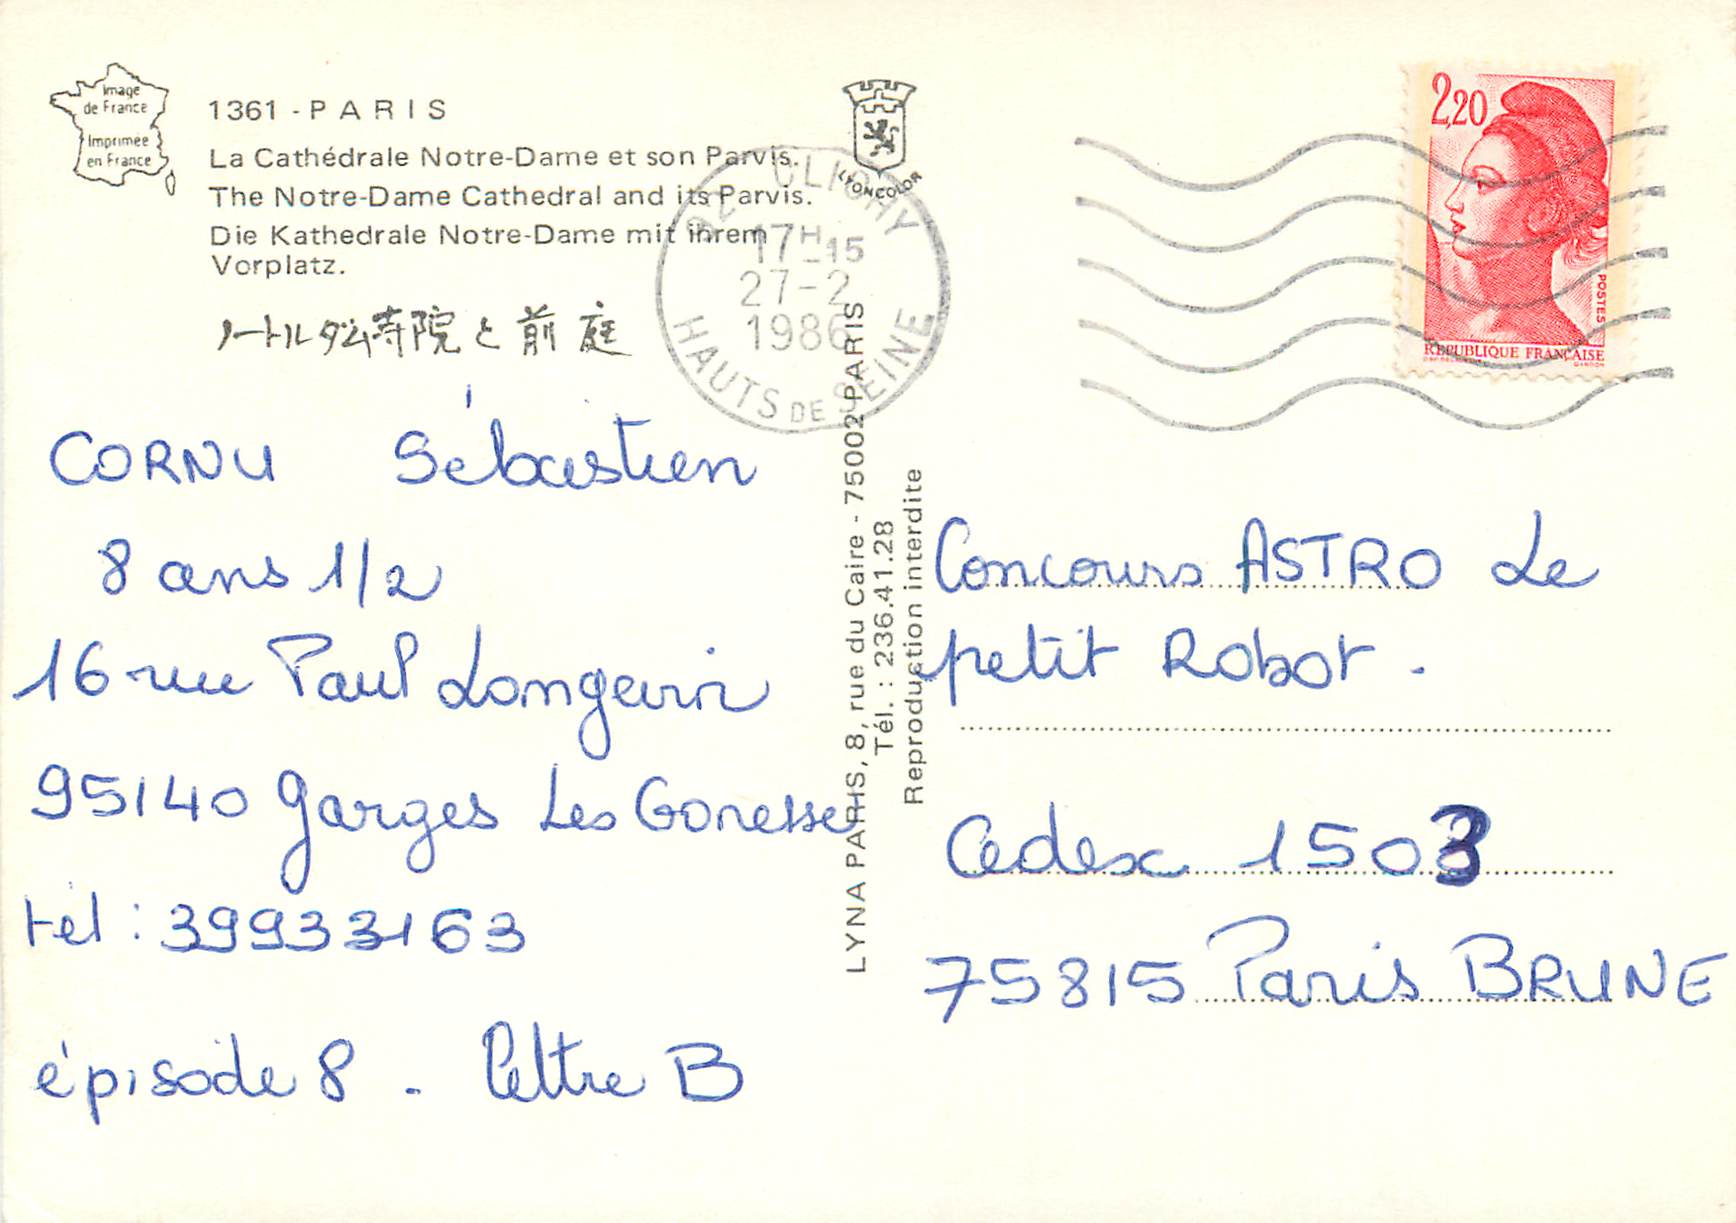 Image
de France
Imprimée
en France
1361 - PARIS
La Cathédrale Notre-Dame et son Parvis.
The Notre-Dame Cathedral and its Parvis.
Die Kathedrale Notre-Dame mit ihrem
Vorplatz.
ノートルダム寺院と前庭
LYONCOLOR
92 CLICHY
17H15
27-2
1986
HAUTS DE SEINE
2,20
POSTES
REPUBLIQUE FRANÇAISE
GANDON
CORNU Sébastien
8 ans 1/2
16 rue Paul Longevin
95140 Garges Les Gonesse
tél : 39933163
épisode 8 . Lettre B
LYNA PARIS, 8, rue du Caire - 75002 PARIS
Tél. : 236.41.28
Reproduction interdite
Concours ASTRO Le
petit Robot .
Cedex 1503
75815 Paris BRUNE